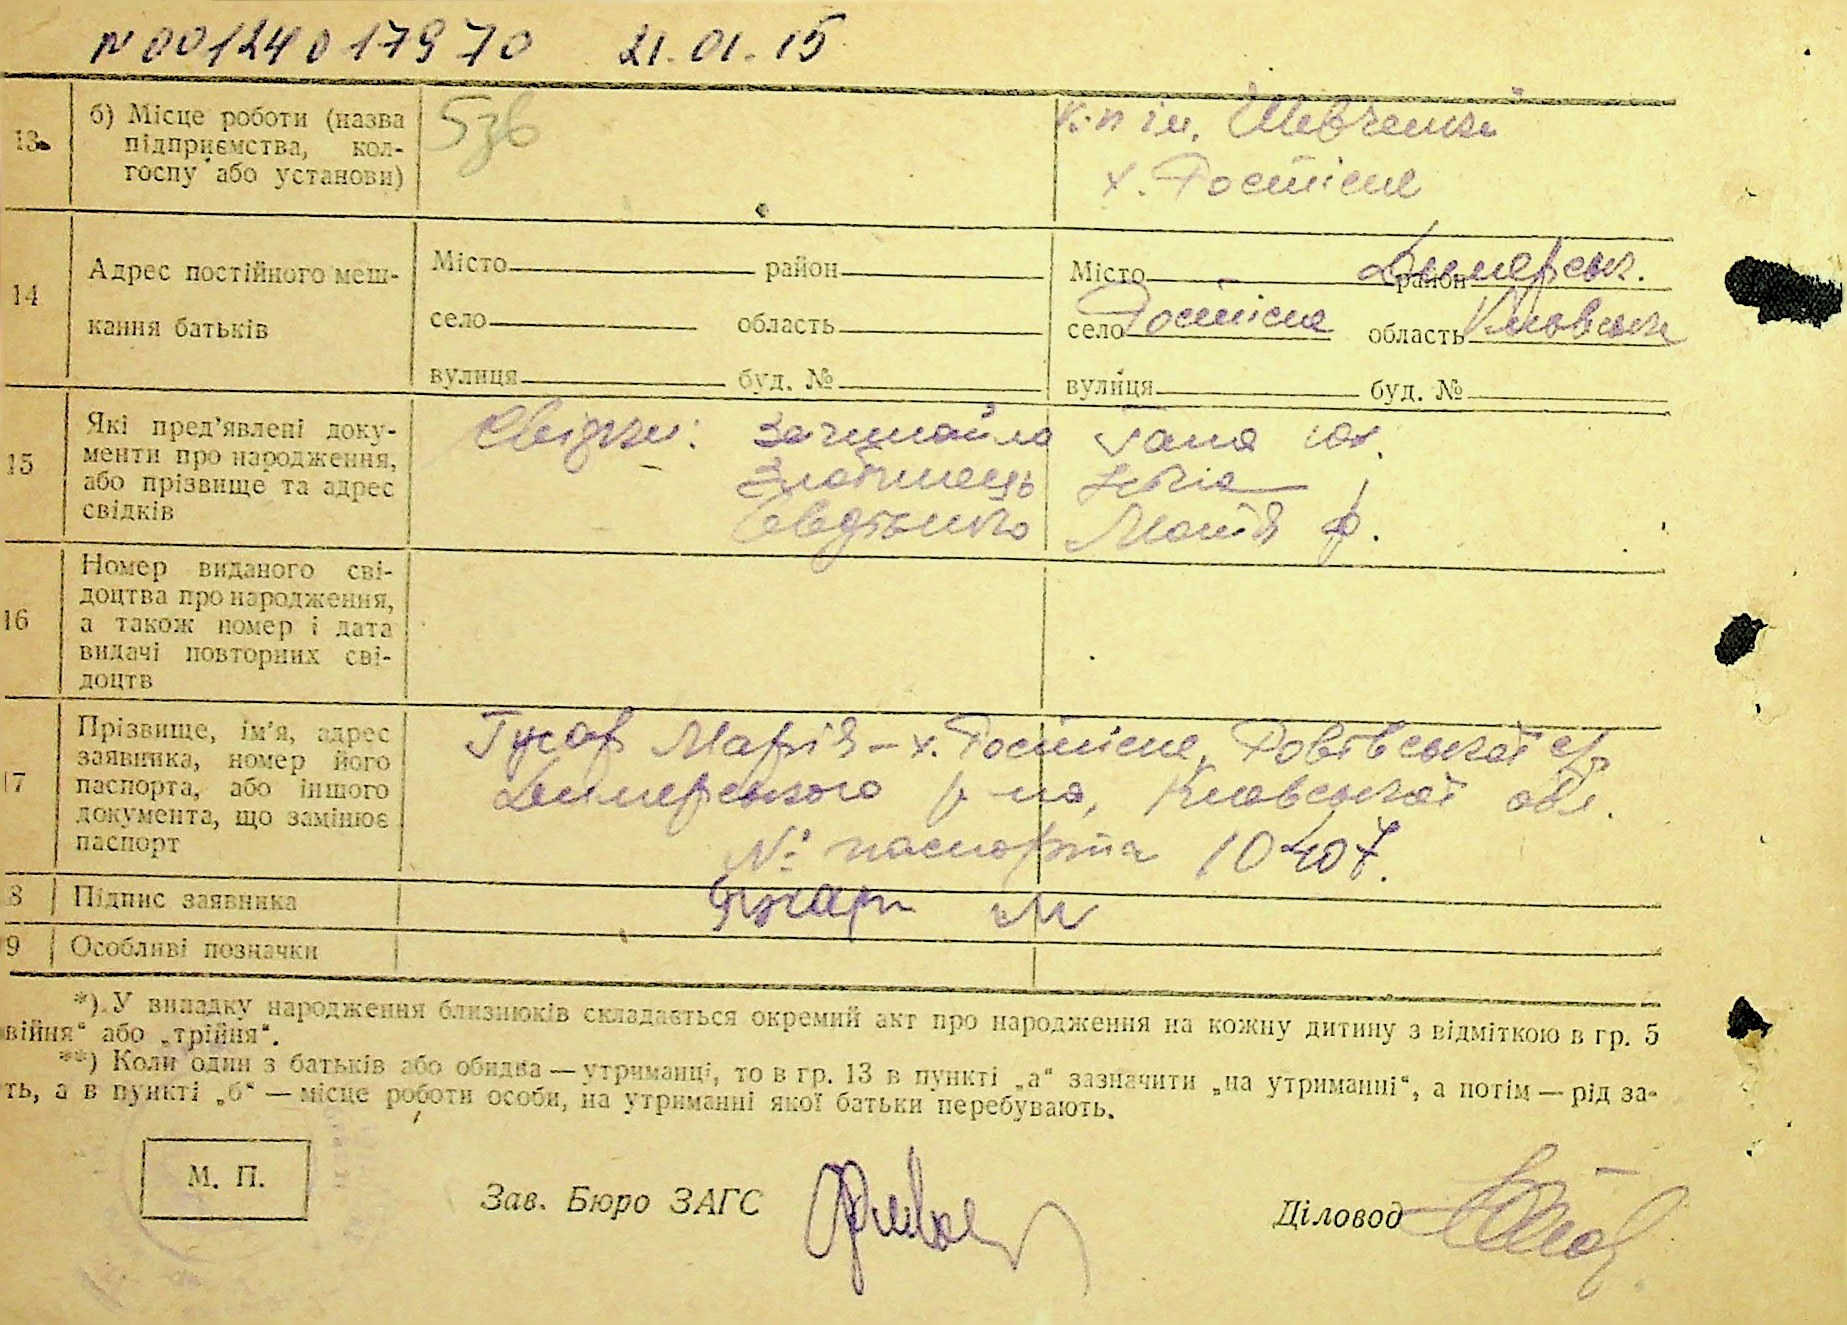 N00124017970 21.01.15
13 б) Місце роботи (назва підприємства, кол-
госпу або установи)
к-п ім. Шевченка
х. Ростісне
14 Адрес постійного меш-
кання батьків
Місто район
село область
вулиця буд. №
Місто район Димерськ.
село Ростісне область Київська
вулиця буд. №
15 Які пред'явлені доку-
менти про народження,
або прізвище та адрес
свідків
Свідки:
Ганна
Марія Ф.
16 Номер виданого сві-
доцтва про народження,
а також номер і дата
видачі повторних сві-
доцтв
17 Прізвище, ім'я, адрес
заявника, номер його
паспорта, або іншого
документа, що замінює
паспорт
Гусар Марія – х. Ростісне,
Димерського р-на, Київської обл.
№ паспорта 10407.
8 Підпис заявника
Гусар М
9 Особливі позначки
*) У випадку народження близнюків складається окремий акт про народження на кожну дитину з відміткою в гр. 5
війня" або „трійня".
**) Коли один з батьків або обидва — утриманці, то в гр. 13 в пункті „а" зазначити „на утриманні", а потім — рід за-
ть, а в пункті „б" — місце роботи особи, на утриманні якої батьки перебувають.
М. П.
Зав. Бюро ЗАГС
Діловод